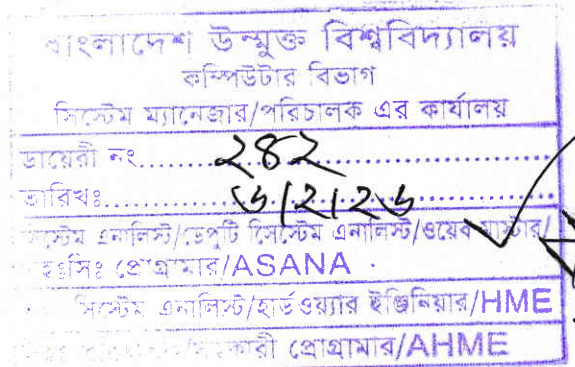 বাংলাদেশ উন্মুক্ত বিশ্ববিদ্যালয়
কম্পিউটার বিভাগ
সিস্টেম ম্যানেজার/পরিচালক এর কার্যালয়
ডায়েরী নং......২৪২......
তারিখঃ......৬/২/২৬......
সিস্টেম এনালিস্ট/ডেপুটি সিস্টেম এনালিস্ট/ওয়েব মাস্টার/
প্রোগ্রামার/ASANA
সিস্টেম এনালিস্ট/হার্ডওয়্যার ইঞ্জিনিয়ার/HME
প্রোগ্রামার/AHME